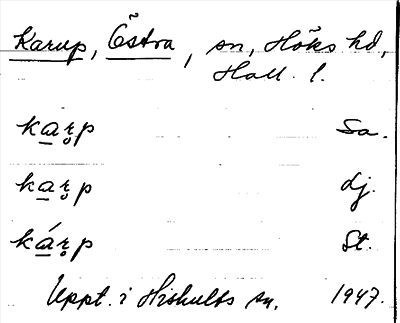 Karup, Östra, sn, Höks hd,
Hall. l.
ka̲r̥p Sa.
ka̲r̥p dj.
ká̲r̥p St.
Uppt. i Hishults sn. 1947.